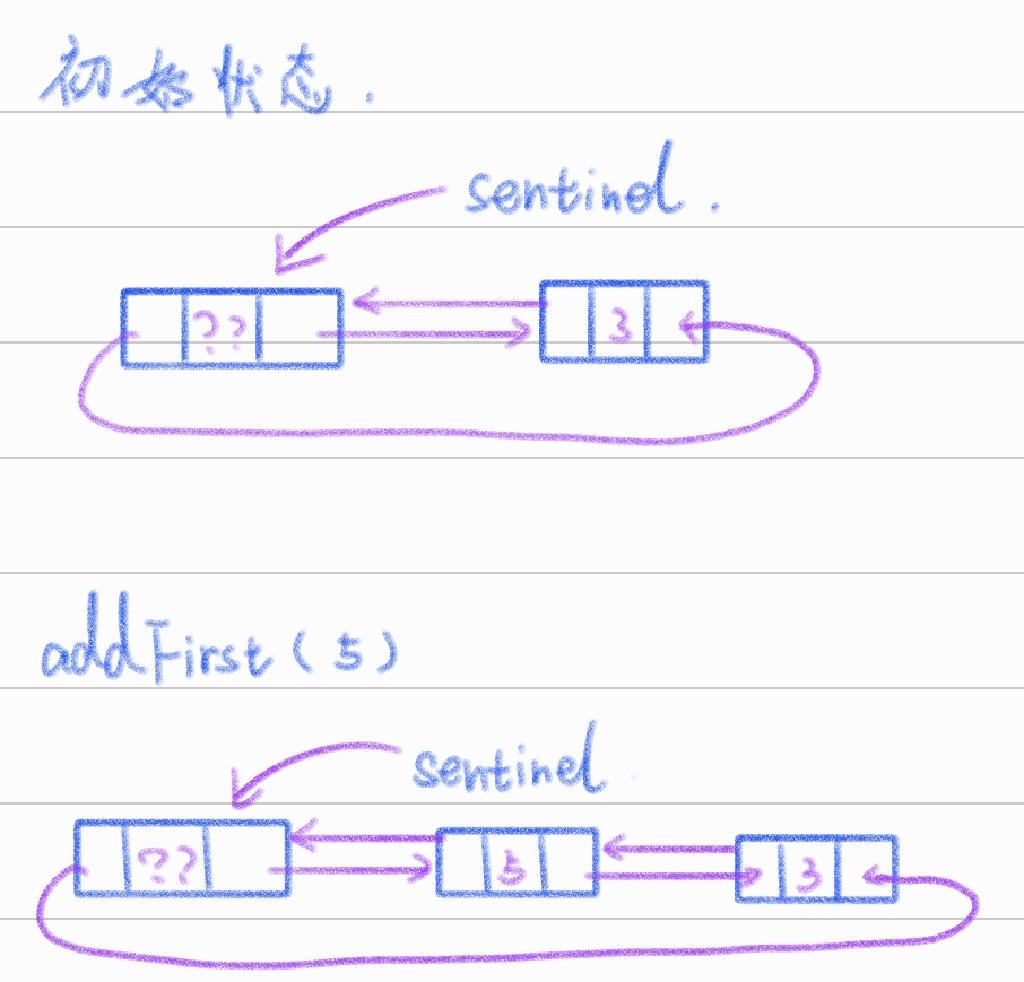 初始状态.
sentinel.
?? 3
addFirst(5)
sentinel
?? 5 3